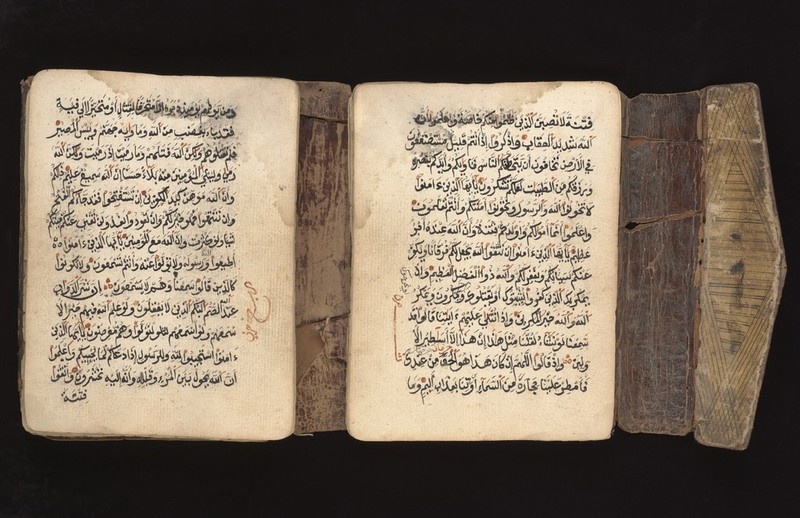 ومن يولهم يومئذ دبره الا متحرفا لقتال او متحيزا الى فئة
فقد باء بغضب من الله وماويه جهنم وبيس المصير
فلم تقتلوهم ولكن الله قتلهم وما رميت اذ رميت ولكن الله
رمى وليبلي المؤمنين منه بلاء حسنا ان الله سميع عليم ذلكم
وان الله موهن كيد الكفرين ان تستفتحوا فقد جاءكم الفتح
وان تنتهوا فهو خير لكم وان تعودوا نعد ولن تغني عنكم فئتكم
شيئا ولو كثرت وان الله مع المومنين يايها الذين ءامنوا
اطيعوا الله ورسوله ولا تولوا عنه وانتم تسمعون ولا تكونوا
كالذين قالوا سمعنا وهم لا يسمعون ان شر الدواب
عند الله الصم البكم الذين لا يعقلون ولو علم الله فيهم خيرا لا
سمعهم ولو اسمعهم لتولوا وهم معرضون يايها الذين
ءامنوا استجيبوا لله وللرسول اذا دعاكم لما يحييكم واعلموا
ان الله يحول بين المرء وقلبه وانه اليه تحشرون واتقوا
فتنة
فتنة لا تصيبن الذين ظلموا منكم خاصة واعلموا ان
الله شديد العقاب واذكروا اذ انتم قليل مستضعفون
في الارض تخافون ان يتخطفكم الناس فاويكم وايدكم بنصره
ورزقكم من الطيبت لعلكم تشكرون يايها الذين ءامنوا
لا تخونوا الله والرسول وتخونوا امنتكم وانتم تعلمون
واعلموا انما اموالكم واولدكم فتنة وان الله عنده اجر
عظيم يايها الذين ءامنوا ان تتقوا الله يجعل لكم فرقانا ويكفر
عنكم سيئاتكم ويغفر لكم والله ذوا الفضل العظيم واذ
يمكر بك الذين كفروا ليثبتوك او يقتلوك او يخرجوك ويمكرون ويمكر
الله والله خير المكرين واذا تتلى عليهم ءايتنا قالوا قد
سمعنا لو نشاء لقلنا مثل هذا ان هذا الا اسطير الا
ولين واذ قالوا اللهم ان كان هذا هو الحق من عندك
فامطر علينا حجارة من السماء او ئتنا بعذاب اليم وما